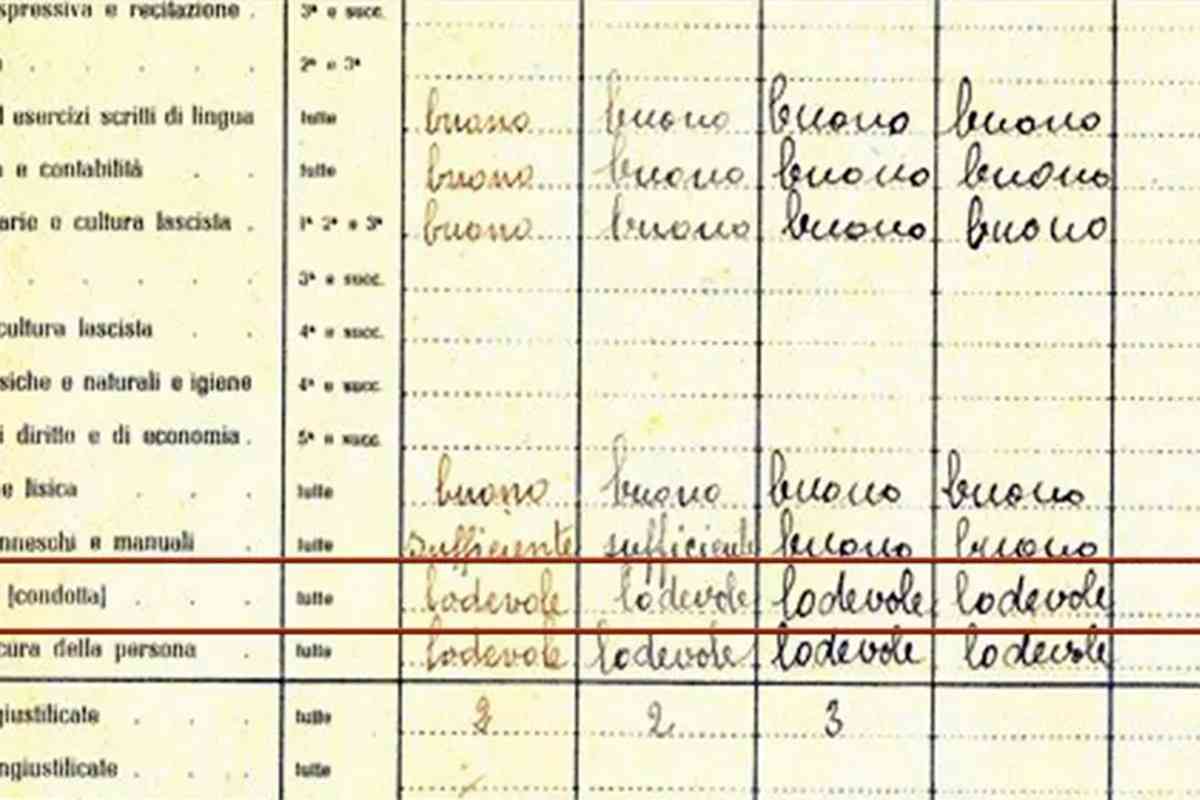 spressiva e recitazione . 3ª e succ.
. . . . . 2ª e 3ª
esercizi scritti di lingua tutte buono buono buono buono
e contabilità . . tutte buono buono buono buono
arie e cultura fascista . 1ª 2ª e 3ª buono buono buono buono
. . . . . 3ª e succ.
cultura fascista . . 4ª e succ.
siche e naturali e igiene 4ª e succ.
i diritto e di economia . 5ª e succ.
e fisica . . . tutte buono buono buono buono
nneschi e manuali . tutte sufficiente sufficiente buono buono
[condotta] . . . tutte lodevole lodevole lodevole lodevole
cura della persona . tutte lodevole lodevole lodevole lodevole
giustificate . . . tutte 2 2 3
ngiustificate . . . tutte